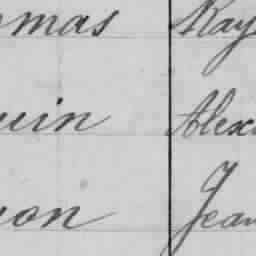 omas Ray
uin Alex
on Jean